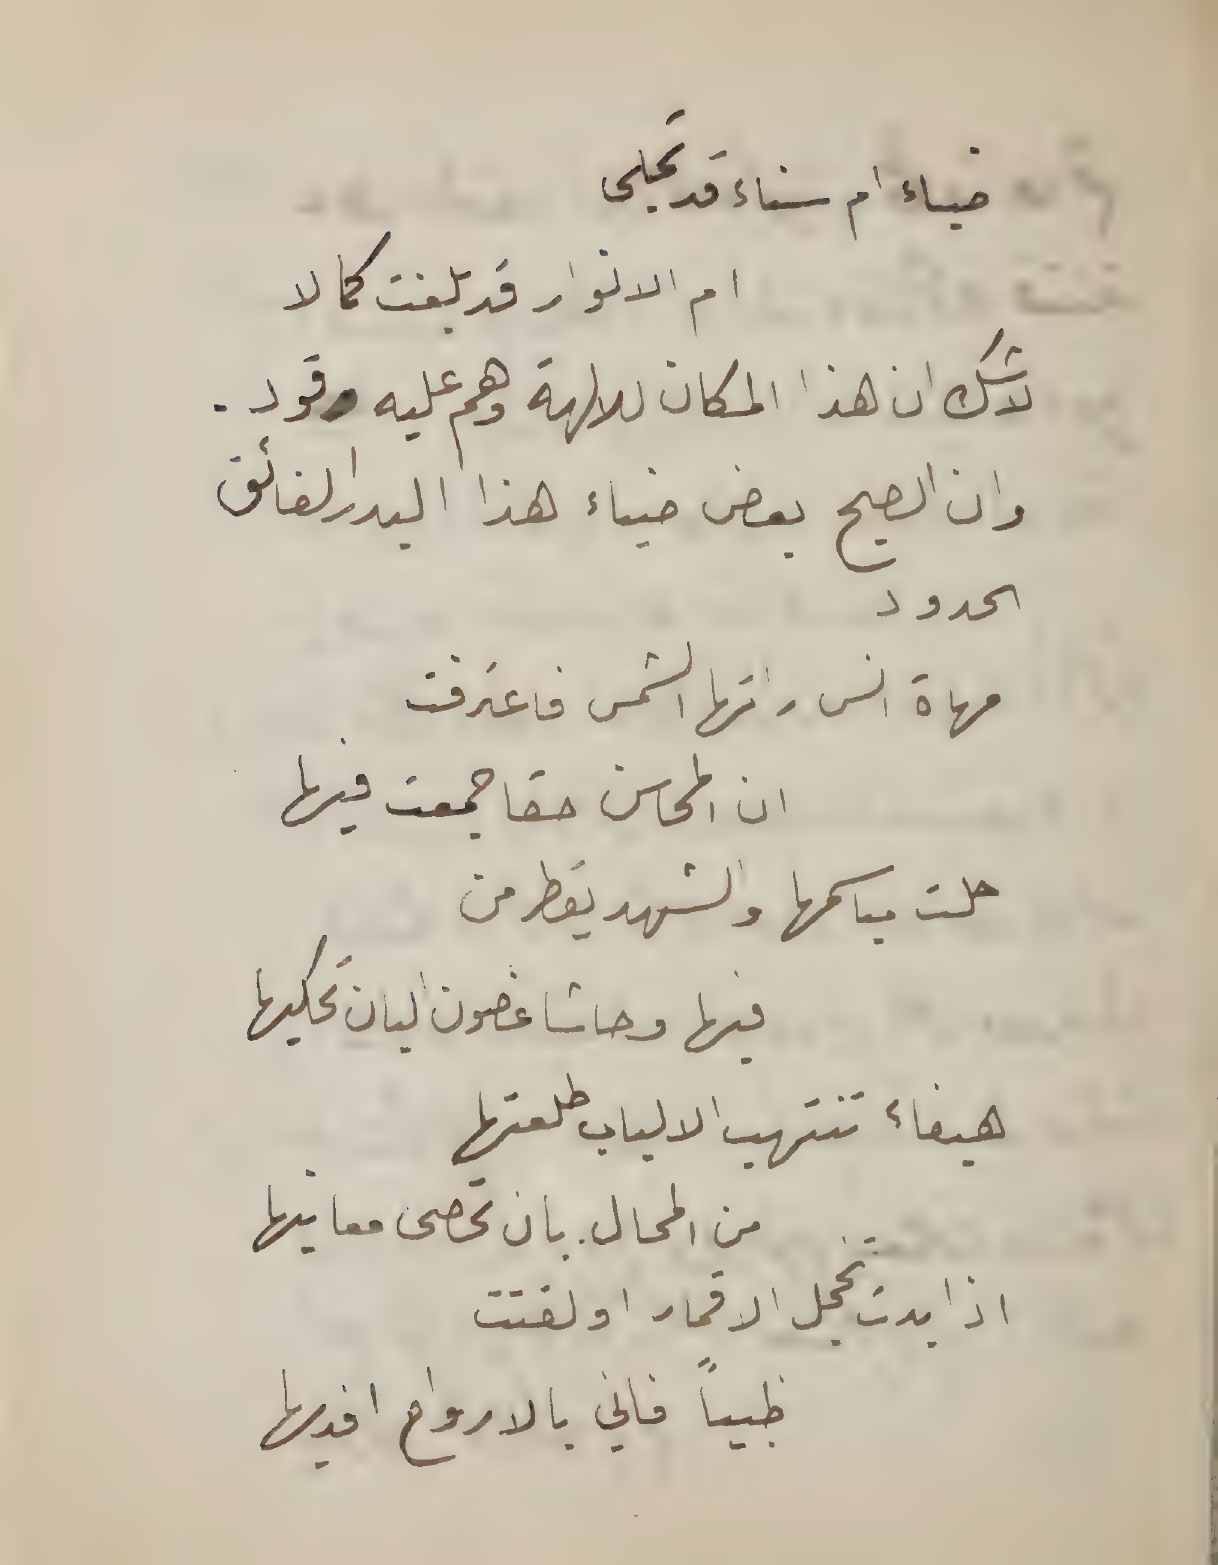 ضياء ام سناء قد تجلى
ام الانوار قد بلغت كمالا
لاشك ان هذا المكان للالهة وهم عليه رقود .
وان الصبح بعض ضياء هذا البدر الفائق
الحدود
مهاة انس راتها الشمس فاعترفت
ان المحاسن حقا جمعت فيها
حلت مباسمها والشهد يقطر من
فيها وحاشا غصون البان تحكيها
هيفاء تنتهب الالباب طلعتها
من المحال بان تحصى معانيها
اذا بدت تخجل الاقمار او لفتت
ظبياً فاني بالارواح افديها